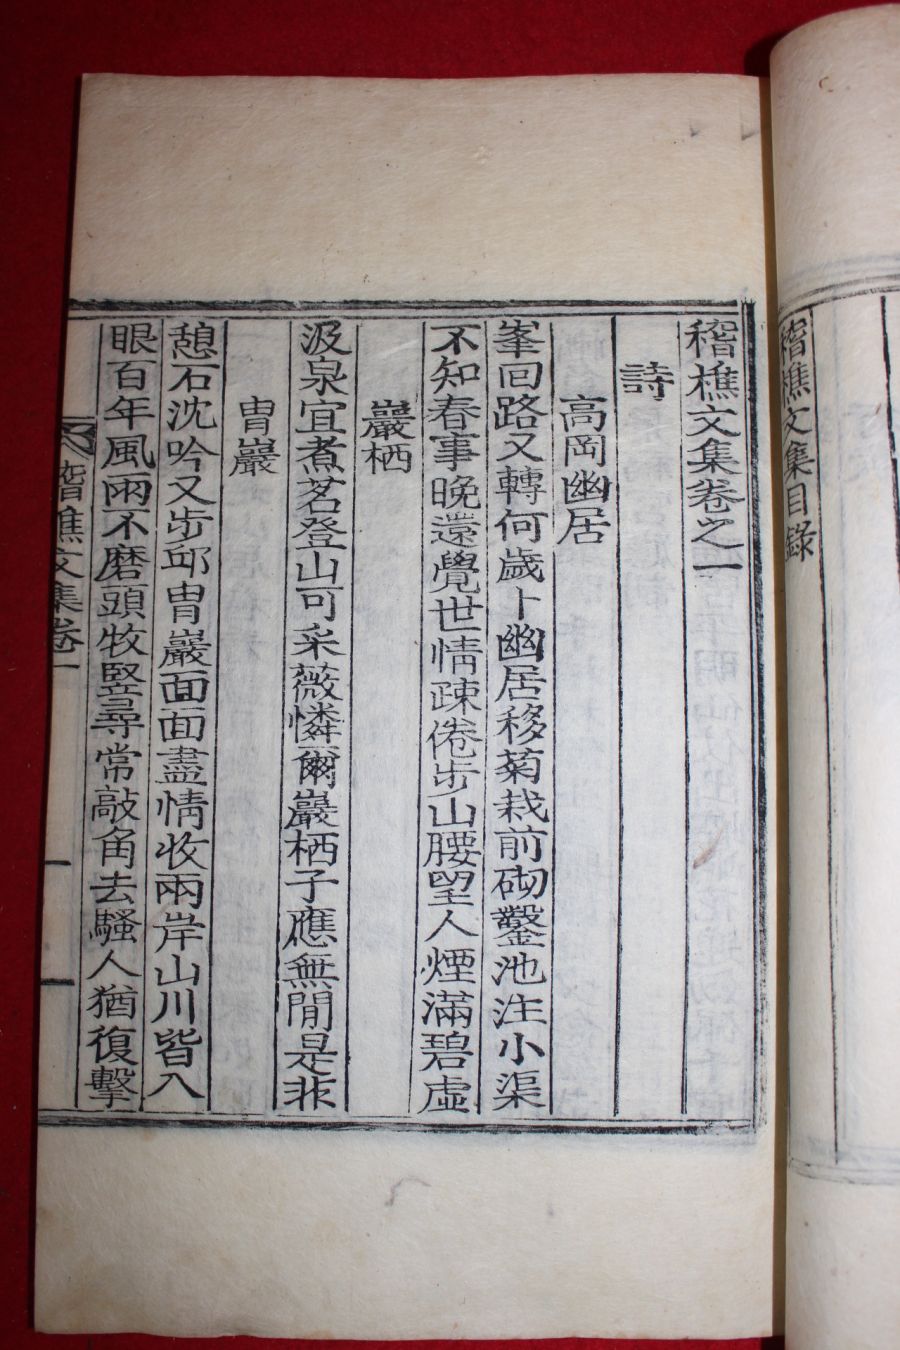 稽樵文集目錄
稽樵文集卷之一
詩
高岡幽居
峯回路又轉何歲卜幽居移菊栽前砌鑿池注小渠
不知春事晩還覺世情疎倦步山腰望人煙滿碧虛
巖栖
汲泉宜煮茗登山可采薇憐爾巖栖子應無閒是非
冑巖
憩石沈吟又步邱冑巖面面盡情收兩岸山川皆入
眼百年風雨不磨頭牧竪尋常敲角去騷人猶復擊
稽樵文集卷一
一